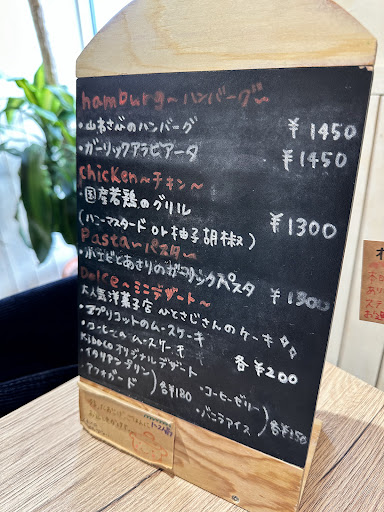 hamburg～ハンバーグ～
・山本さんのハンバーグ ¥1450
・ガーリックアラビアータ ¥1450
chicken～チキン～
国産若鶏のグリル ¥1300
(ハニーマスタード or 柚子胡椒)
Pasta～パスタ～
・小エビとあさりのガーリックパスタ ¥1300
Dolce～ミニデザート～
大人気洋菓子店 ひとさじさんのケーキ
・アプリコットのムースケーキ
・コーヒーのムースケーキ 各¥200
Kibacoオリジナルデザート
・イタリアンプリン ・コーヒーゼリー
・アフォガード 各¥180 ・バニラアイス 各¥150